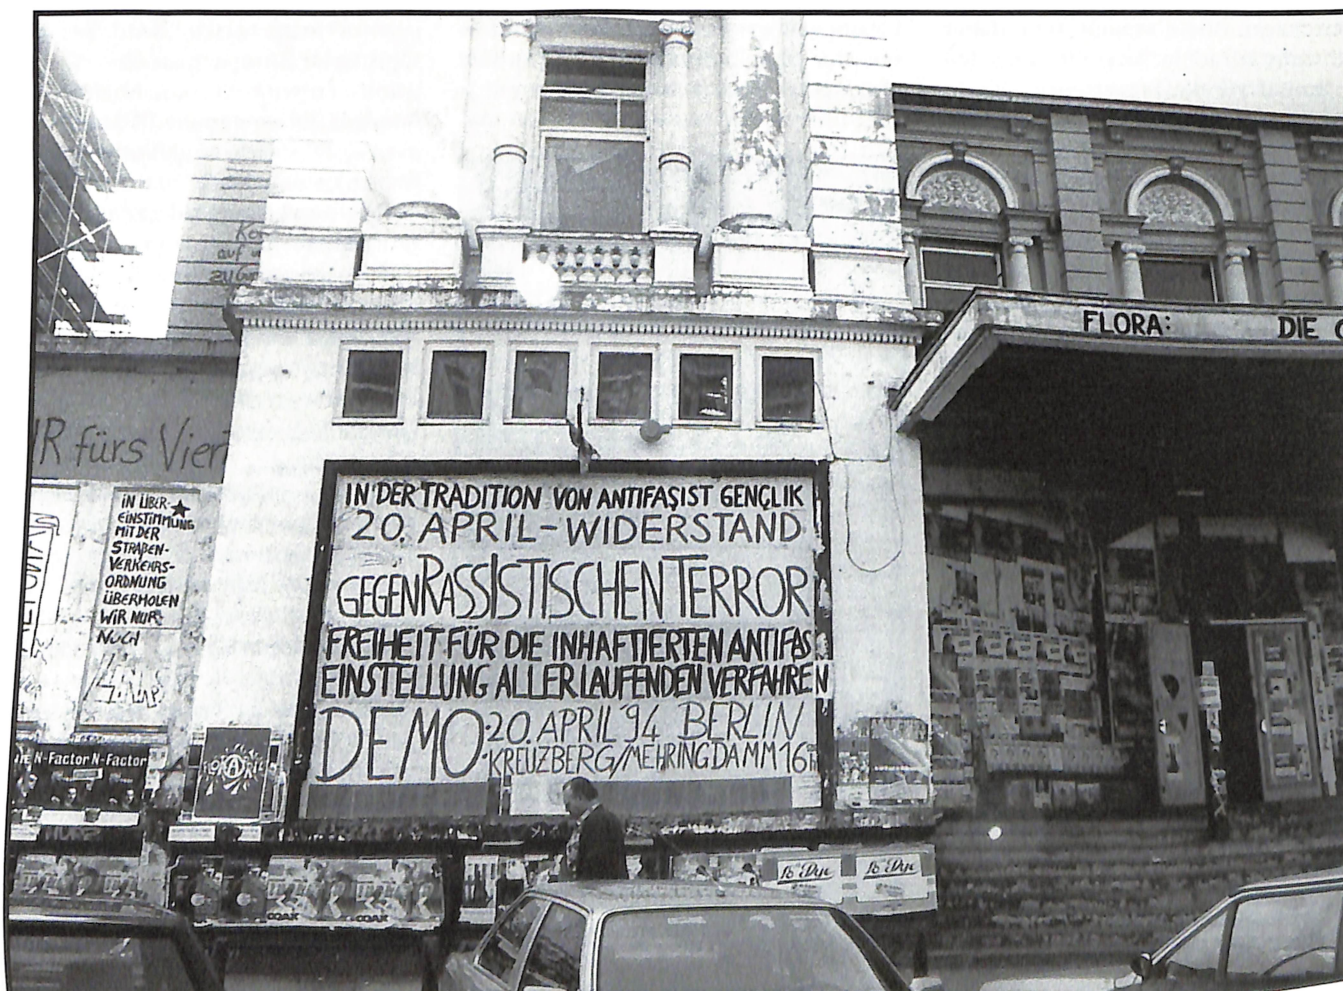 FLORA:
DIE
fürs
IN ÜBER-
EINSTIMMUNG
MIT DER
STRAßEN-
VERKEHRS-
ORDNUNG
ÜBERHOLEN
WIR NUR
NOCH
IN DER TRADITION VON ANTIFAŞIST GENÇLIK
20. APRIL - WIDERSTAND
GEGEN RASSISTISCHEN TERROR
FREIHEIT FÜR DIE INHAFTIERTEN ANTIFAS
EINSTELLUNG ALLER LAUFENDEN VERFAHREN
DEMO: 20. APRIL '94 BERLIN
KREUZBERG/MEHRINGDAMM 16h
N-Factor N-Factor